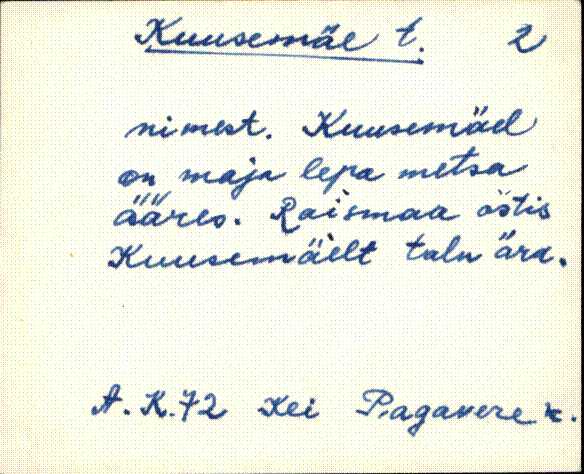 Kuusemäe t. 2
nimest. Kuusemäel
on maja lepa metsa
ääres. Raismaa ostis
Kuusemäelt talu ära.
A. K. 72 Kei Pagavere k.